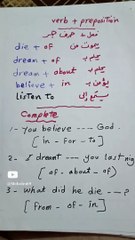 verb + preposition
فعل + حرف جر
die + of يموت من
dream + of يحلم بـ
dream + about يحلم بـ
believe + in يؤمن بـ
listen to يستمع إلى
Complete
1- you believe ..... God.
[in - for - to]
2. I dreamt ..... you last nig
[of - about - of]
3- What did he die ..... ?
[from - of - in]